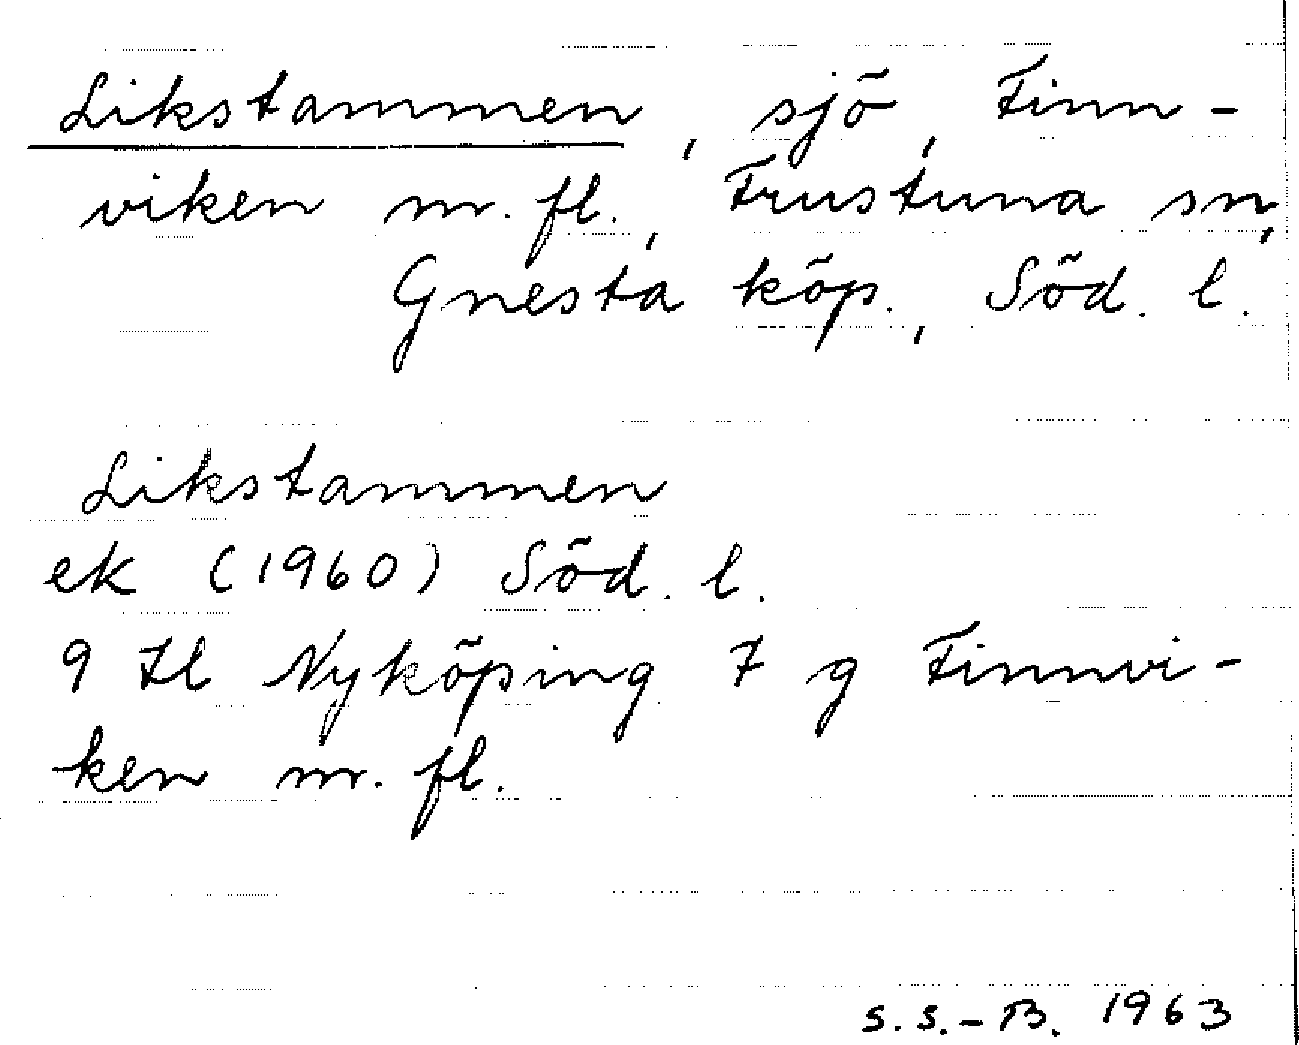 Likstammen, sjö, Finn-
viken m. fl., Frustuna sn,
Gnesta köp., Söd. l.
Likstammen
ek (1960) Söd. l.
9 Il Nyköping 7 g Finnvi-
ken m. fl.
S. S.-B. 1963